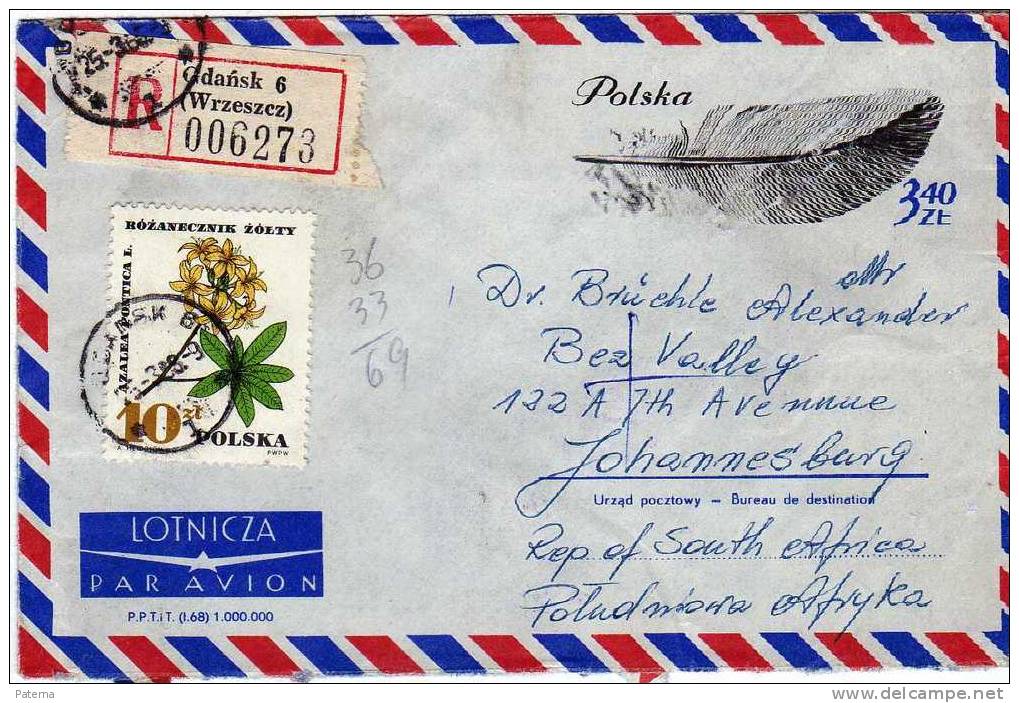 25.-3
Gdańsk 6
(Wrzeszcz)
R
006273
Polska
3 40
ZŁ
RÓŻANECZNIK ŻÓŁTY
AZALEA PONTICA L.
10 zł
POLSKA
PWPW
36
33
69
Dr. Brüchle Alexander
Bez Valley
122 A 7th Avennue
Johannesburg
Urząd pocztowy – Bureau de destination
Rep of South Africa
Południowa Afryka
LOTNICZA
PAR AVION
P.P.T.iT. (I.68) 1.000.000
Patema
delcampe.net